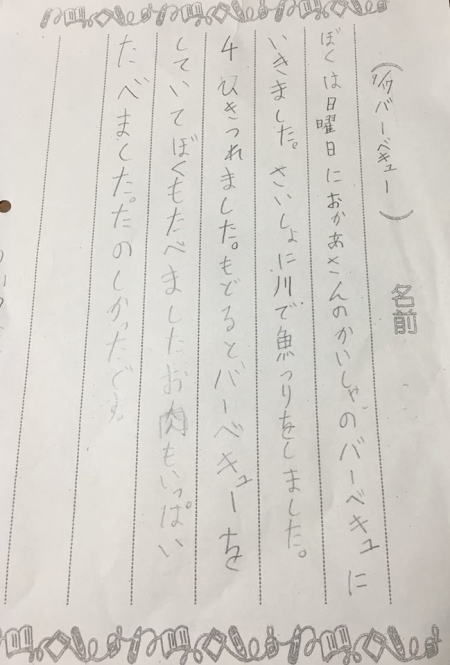 (9/17 バーベキュー)
名前
ぼくは日曜日におかあさんのかいしゃのバーベキュに
いきました。さいしょに川で魚つりをしました。
4ひきつれました。もどるとバーベキューを
していてぼくもたべましたお肉もいっぱい
たべました。たのしかったです。